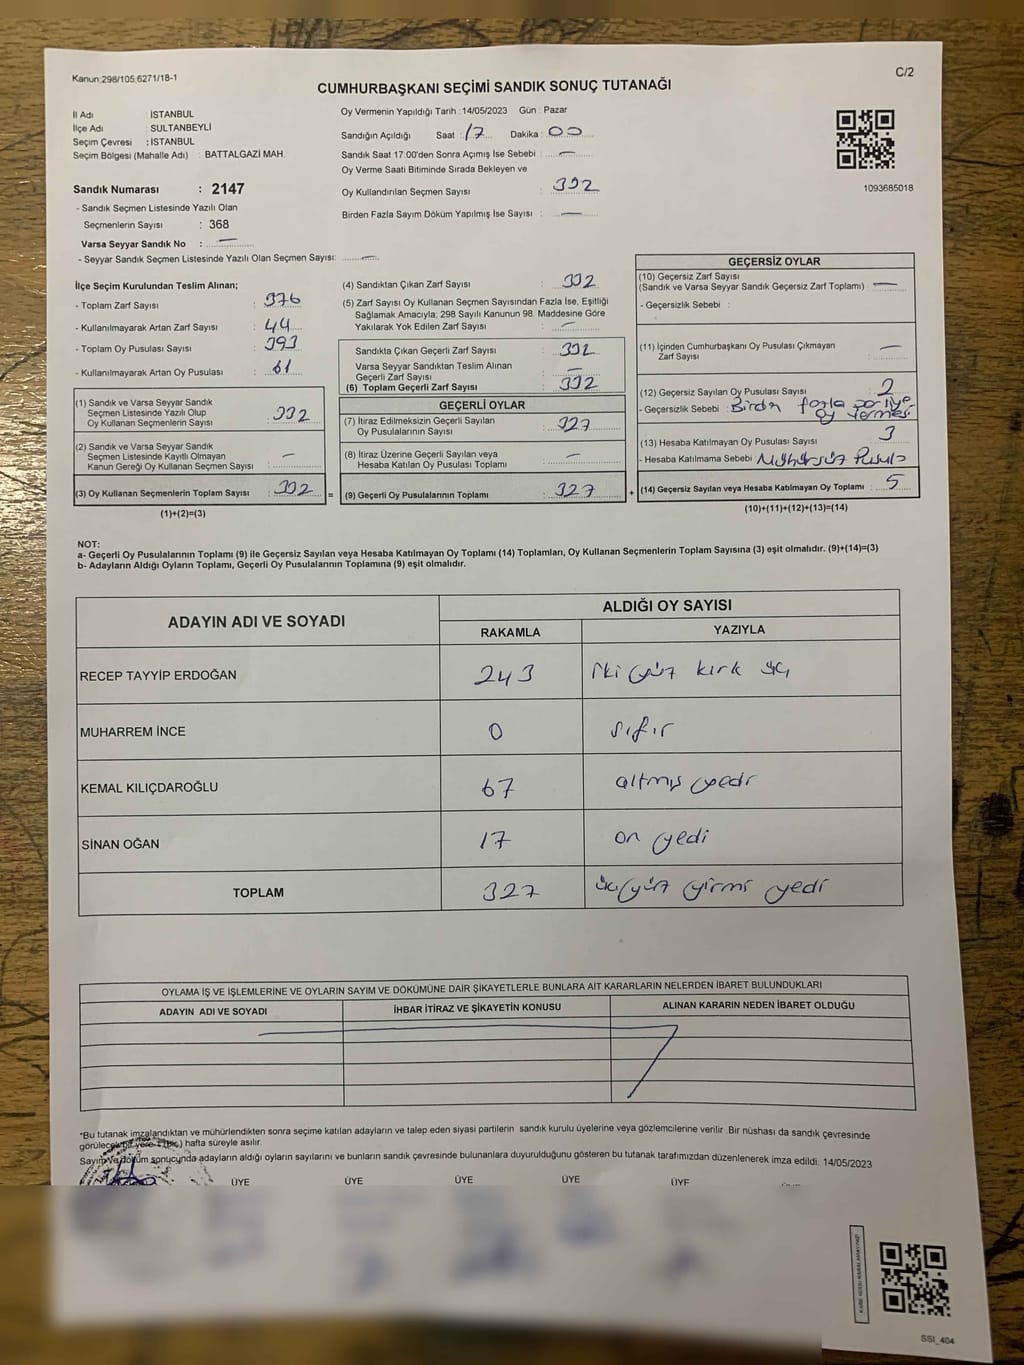 Kanun:298/105,6271/18-1
C/2
CUMHURBAŞKANI SEÇİMİ SANDIK SONUÇ TUTANAĞI
İl Adı İSTANBUL
İlçe Adı SULTANBEYLİ
Seçim Çevresi : İSTANBUL
Seçim Bölgesi (Mahalle Adı) : BATTALGAZİ MAH.
Sandık Numarası : 2147
- Sandık Seçmen Listesinde Yazılı Olan
Seçmenlerin Sayısı : 368
Varsa Seyyar Sandık No : —
- Seyyar Sandık Seçmen Listesinde Yazılı Olan Seçmen Sayısı: —
Oy Vermenin Yapıldığı Tarih :14/05/2023 Gün : Pazar
Sandığın Açıldığı Saat : 17 Dakika : 00
Sandık Saat 17:00'den Sonra Açımış İse Sebebi : —
Oy Verme Saati Bitiminde Sırada Bekleyen ve
Oy Kullandırılan Seçmen Sayısı : 332
Birden Fazla Sayım Döküm Yapılmış İse Sayısı : —
1093685018
İlçe Seçim Kurulundan Teslim Alınan;
- Toplam Zarf Sayısı : 376
- Kullanılmayarak Artan Zarf Sayısı : 44
- Toplam Oy Pusulası Sayısı : 393
- Kullanılmayarak Artan Oy Pusulası : 61
(1) Sandık ve Varsa Seyyar Sandık
Seçmen Listesinde Yazılı Olup
Oy Kullanan Seçmenlerin Sayısı : 332
(2) Sandık ve Varsa Seyyar Sandık
Seçmen Listesinde Kayıtlı Olmayan
Kanun Gereği Oy Kullanan Seçmen Sayısı : —
(3) Oy Kullanan Seçmenlerin Toplam Sayısı : 332 =
(1)+(2)=(3)
(4) Sandıktan Çıkan Zarf Sayısı : 332
(5) Zarf Sayısı Oy Kullanan Seçmen Sayısından Fazla İse, Eşitliği
Sağlamak Amacıyla; 298 Sayılı Kanunun 98. Maddesine Göre
Yakılarak Yok Edilen Zarf Sayısı : —
Sandıkta Çıkan Geçerli Zarf Sayısı : 332
Varsa Seyyar Sandıktan Teslim Alınan
Geçerli Zarf Sayısı : —
(6) Toplam Geçerli Zarf Sayısı : 332
GEÇERLİ OYLAR
(7) İtiraz Edilmeksizin Geçerli Sayılan
Oy Pusulalarının Sayısı : 327
(8) İtiraz Üzerine Geçerli Sayılan veya
Hesaba Katılan Oy Pusulası Toplamı : —
(9) Geçerli Oy Pusulalarının Toplamı : 327 +
GEÇERSİZ OYLAR
(10) Geçersiz Zarf Sayısı
(Sandık ve Varsa Seyyar Sandık Geçersiz Zarf Toplamı) : —
- Geçersizlik Sebebi :
(11) İçinden Cumhurbaşkanı Oy Pusulası Çıkmayan
Zarf Sayısı : —
(12) Geçersiz Sayılan Oy Pusulası Sayısı : 2
- Geçersizlik Sebebi : Birden fazla partiye
oy vermesi
(13) Hesaba Katılmayan Oy Pusulası Sayısı : 3
- Hesaba Katılmama Sebebi : Mühürsüz Pusula
(14) Geçersiz Sayılan veya Hesaba Katılmayan Oy Toplamı : 5
(10)+(11)+(12)+(13)=(14)
NOT:
a- Geçerli Oy Pusulalarının Toplamı (9) ile Geçersiz Sayılan veya Hesaba Katılmayan Oy Toplamı (14) Toplamları, Oy Kullanan Seçmenlerin Toplam Sayısına (3) eşit olmalıdır. (9)+(14)=(3)
b- Adayların Aldığı Oyların Toplamı, Geçerli Oy Pusulalarının Toplamına (9) eşit olmalıdır.
ADAYIN ADI VE SOYADI
ALDIĞI OY SAYISI
RAKAMLA YAZIYLA
RECEP TAYYİP ERDOĞAN 243 iki yüz kırk üç
MUHARREM İNCE 0 sıfır
KEMAL KILIÇDAROĞLU 67 altmış yedi
SİNAN OĞAN 17 on yedi
TOPLAM 327 üç yüz yirmi yedi
OYLAMA İŞ VE İŞLEMLERİNE VE OYLARIN SAYIM VE DÖKÜMÜNE DAİR ŞİKAYETLERLE BUNLARA AİT KARARLARIN NELERDEN İBARET BULUNDUKLARI
ADAYIN ADI VE SOYADI İHBAR İTİRAZ VE ŞİKAYETİN KONUSU ALINAN KARARIN NEDEN İBARET OLDUĞU
*Bu tutanak imzalandıktan ve mühürlendikten sonra seçime katılan adayların ve talep eden siyasi partilerin sandık kurulu üyelerine veya gözlemcilerine verilir. Bir nüshası da sandık çevresinde
görülecek bir yere 1 (bir) hafta süreyle asılır.
Sayım ve döküm sonucunda adayların aldığı oyların sayılarını ve bunların sandık çevresinde bulunanlara duyurulduğunu gösteren bu tutanak tarafımızdan düzenlenerek imza edildi. 14/05/2023
ÜYE ÜYE ÜYE ÜYE ÜYE
SSI_404